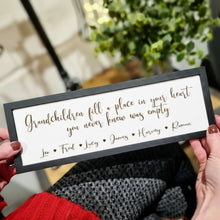 Grandchildren fill a place in your heart
you never knew was empty
Leo ♥ Fred ♥ Lucy ♥ James ♥ Harvey ♥ Romee